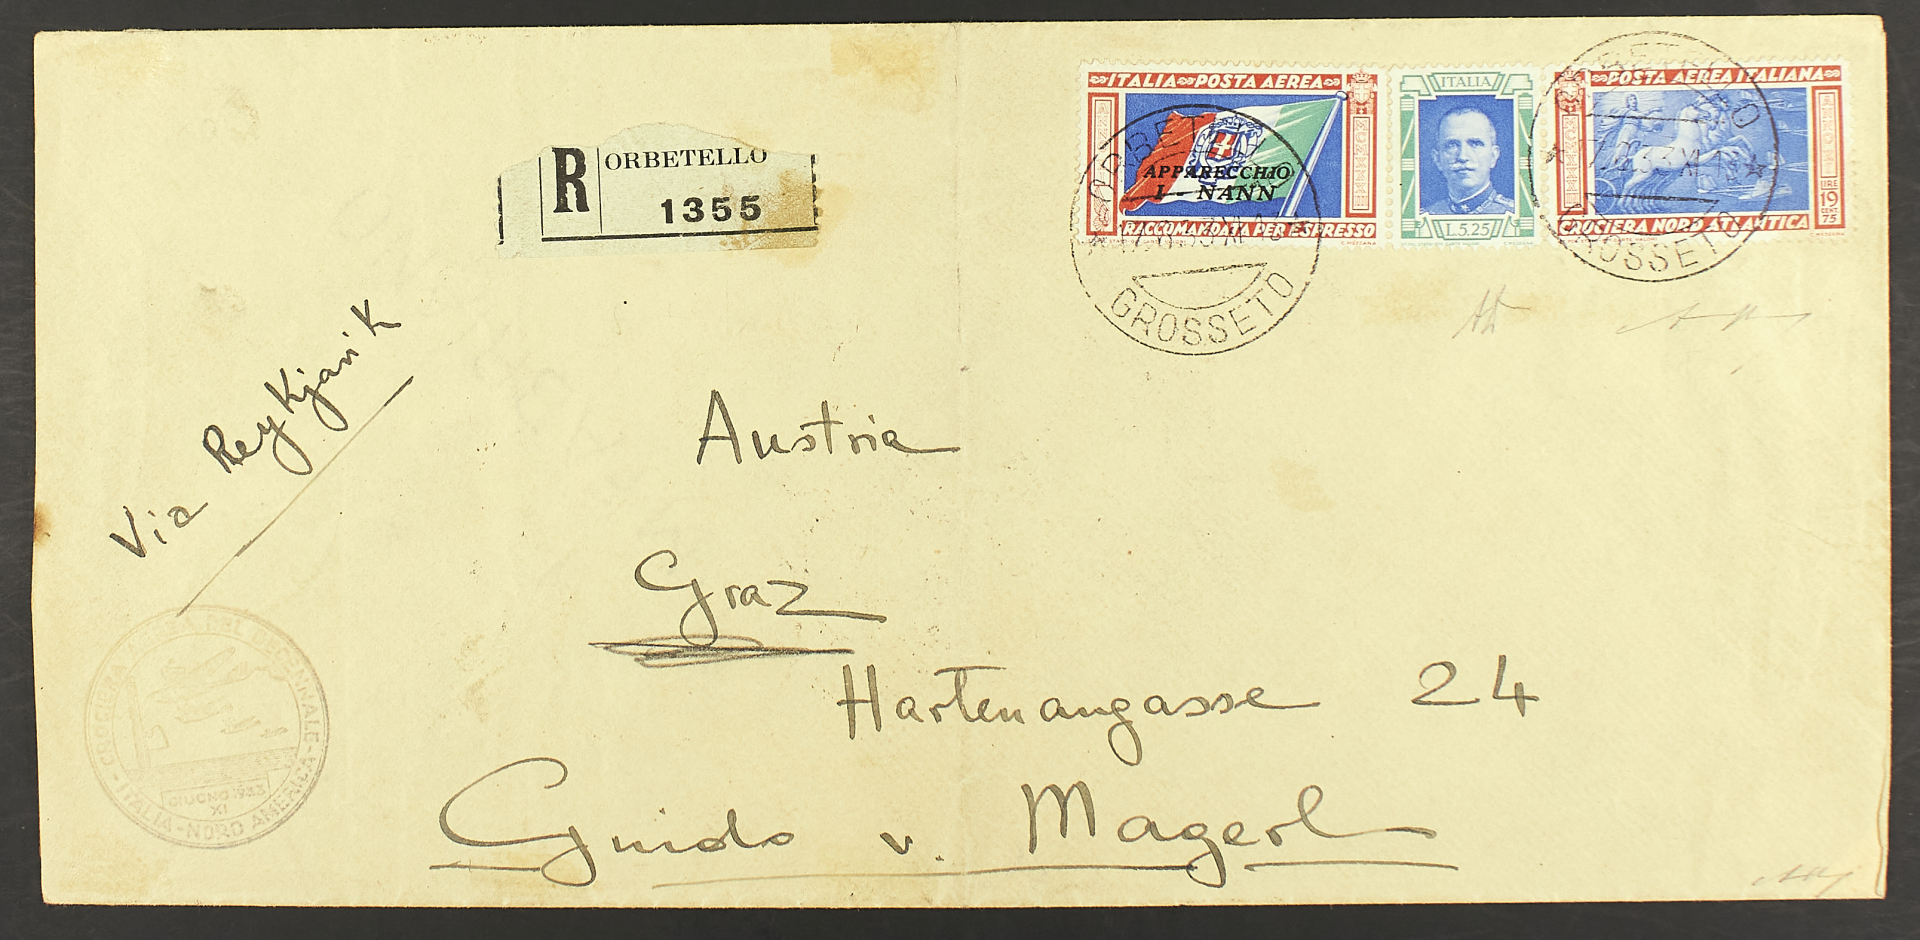 ITALIA POSTA AEREA
APPARECCHIO
I - NANN
RACCOMANDATA PER ESPRESSO
ITALIA
L.5.25
POSTA AEREA ITALIANA
LIRE
19
CENT.
75
CROCIERA NORD ATLANTICA
ORBETELLO
GROSSETO
ORBETELLO
GROSSETO
R
ORBETELLO
1355
Via Reykjavik
Austria
Graz
Hartenaugasse 24
Guido v. Magerl
CROCIERA AEREA DEL DECENNALE
ITALIA - NORD AMERICA
GIUGNO 1933
XI